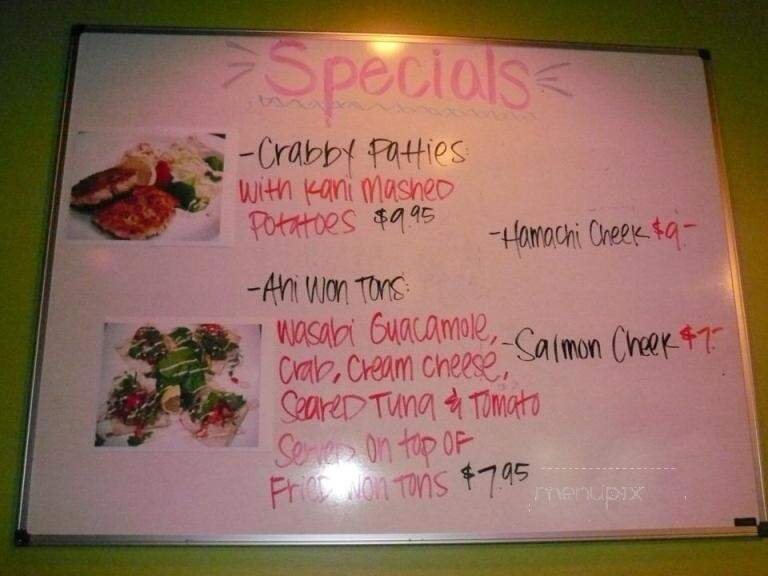 Specials
-Crabby Patties:
with Kani Mashed
Potatoes $9.95
-Hamachi Cheek $9.-
-Ahi Won Tons:
Wasabi Guacamole,
Crab, Cream Cheese,
Seared Tuna & Tomato
Served on top of
Fried Won Tons $7.95
-Salmon Cheek $7.-
menupix